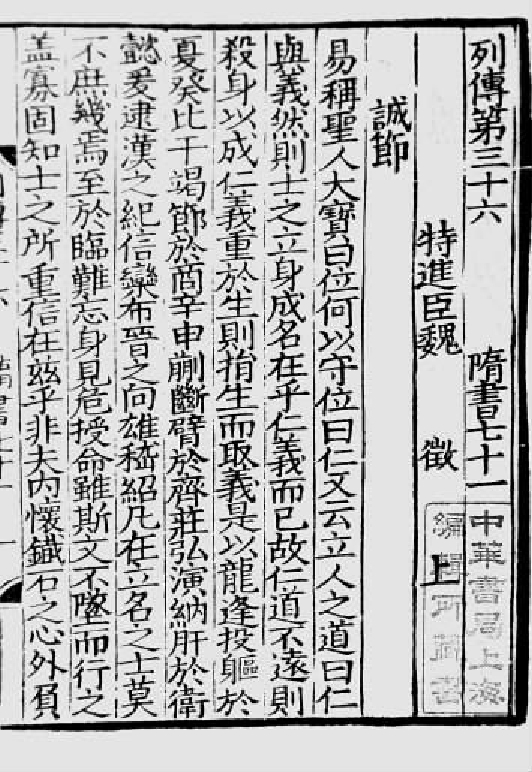 列傳第三十六　隋書七十一
特進臣魏　徵　上
誠節
易稱聖人大寶曰位何以守位曰仁又云立人之道曰仁
與義然則士之立身成名在乎仁義而已故仁道不遠則
殺身以成仁義重於生則捐生而取義是以龍逢投軀於
夏癸比干竭節於商辛申蒯斷臂於齊莊弘演納肝於衛
懿爰逮漢之紀信欒布晉之向雄嵇紹凡在立名之士莫
不庶幾焉至於臨難忘身見危授命雖斯文不墜而行之
蓋寡固知士之所重信在兹乎非夫內懷鐵石之心外負
中華書局上海
編輯所藏書